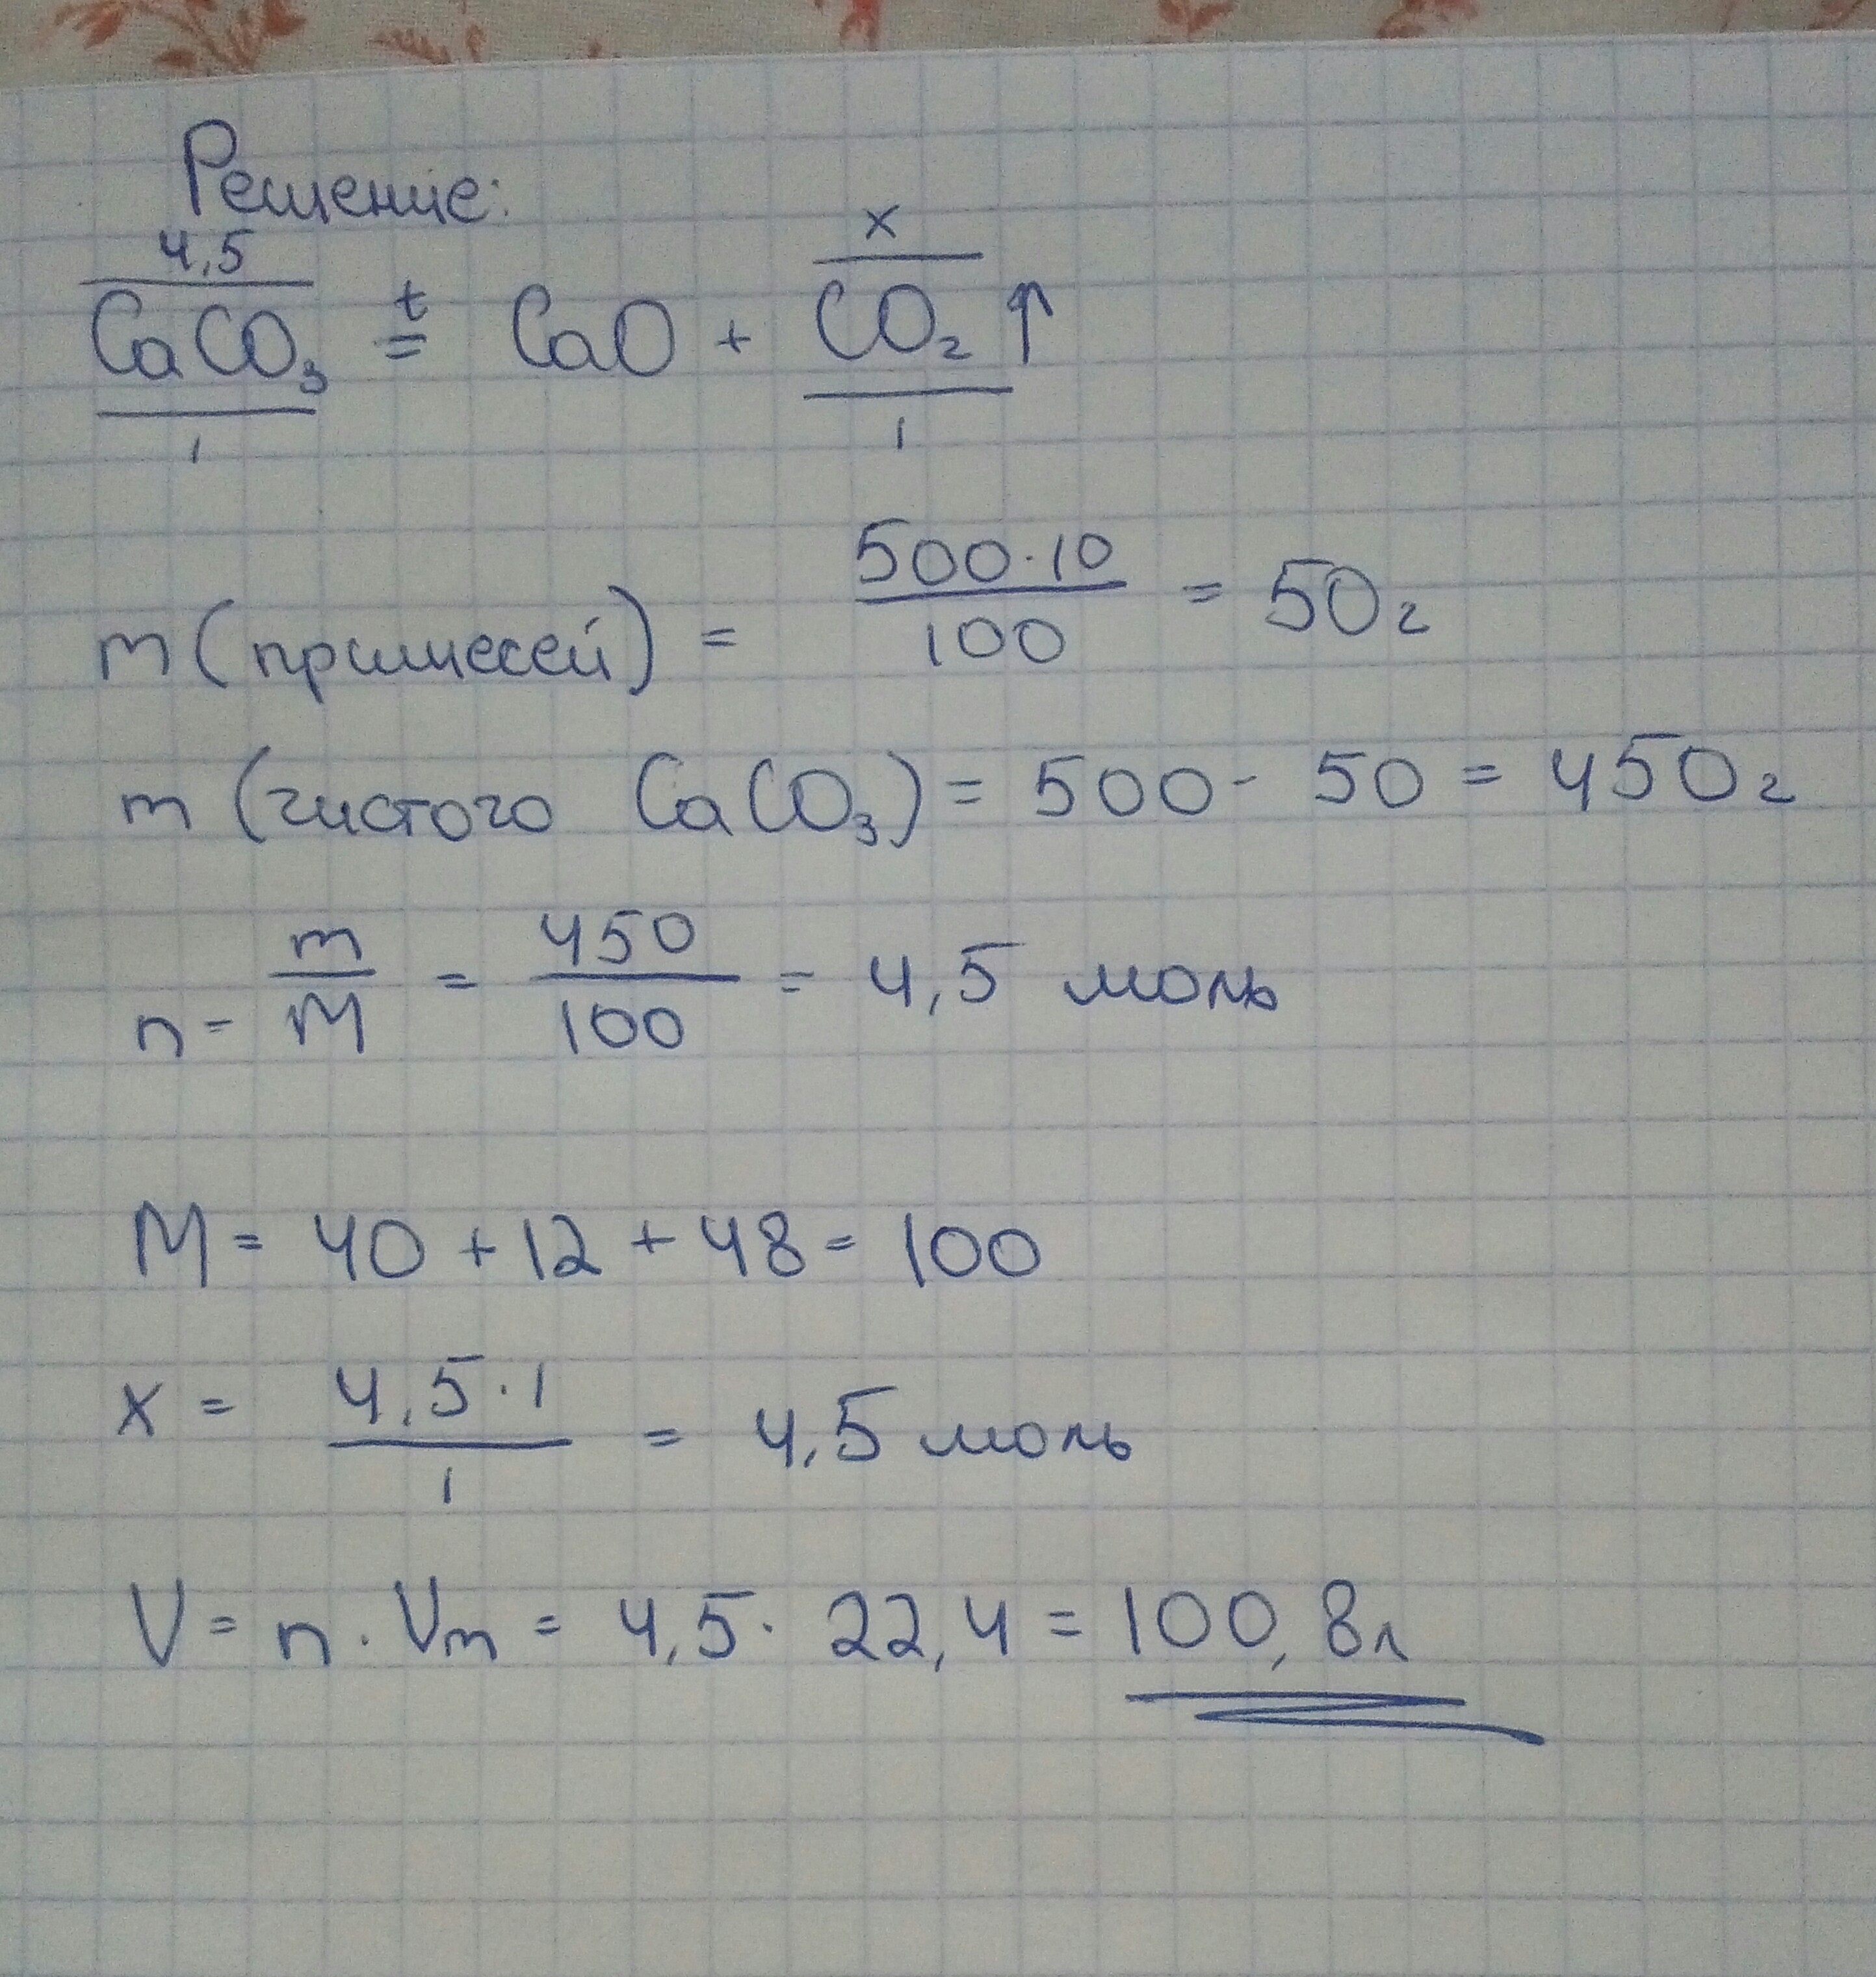 Решение:
4,5 x
CaCO₃ =ᵗ CaO + CO₂ ↑
1 1
m (примесей) = 500·10/100 = 50 г
m (чистого CaCO₃) = 500 - 50 = 450 г
n = m/M = 450/100 = 4,5 моль
M = 40 + 12 + 48 = 100
x = 4,5·1/1 = 4,5 моль
V = n · Vm = 4,5 · 22,4 = 100,8 л